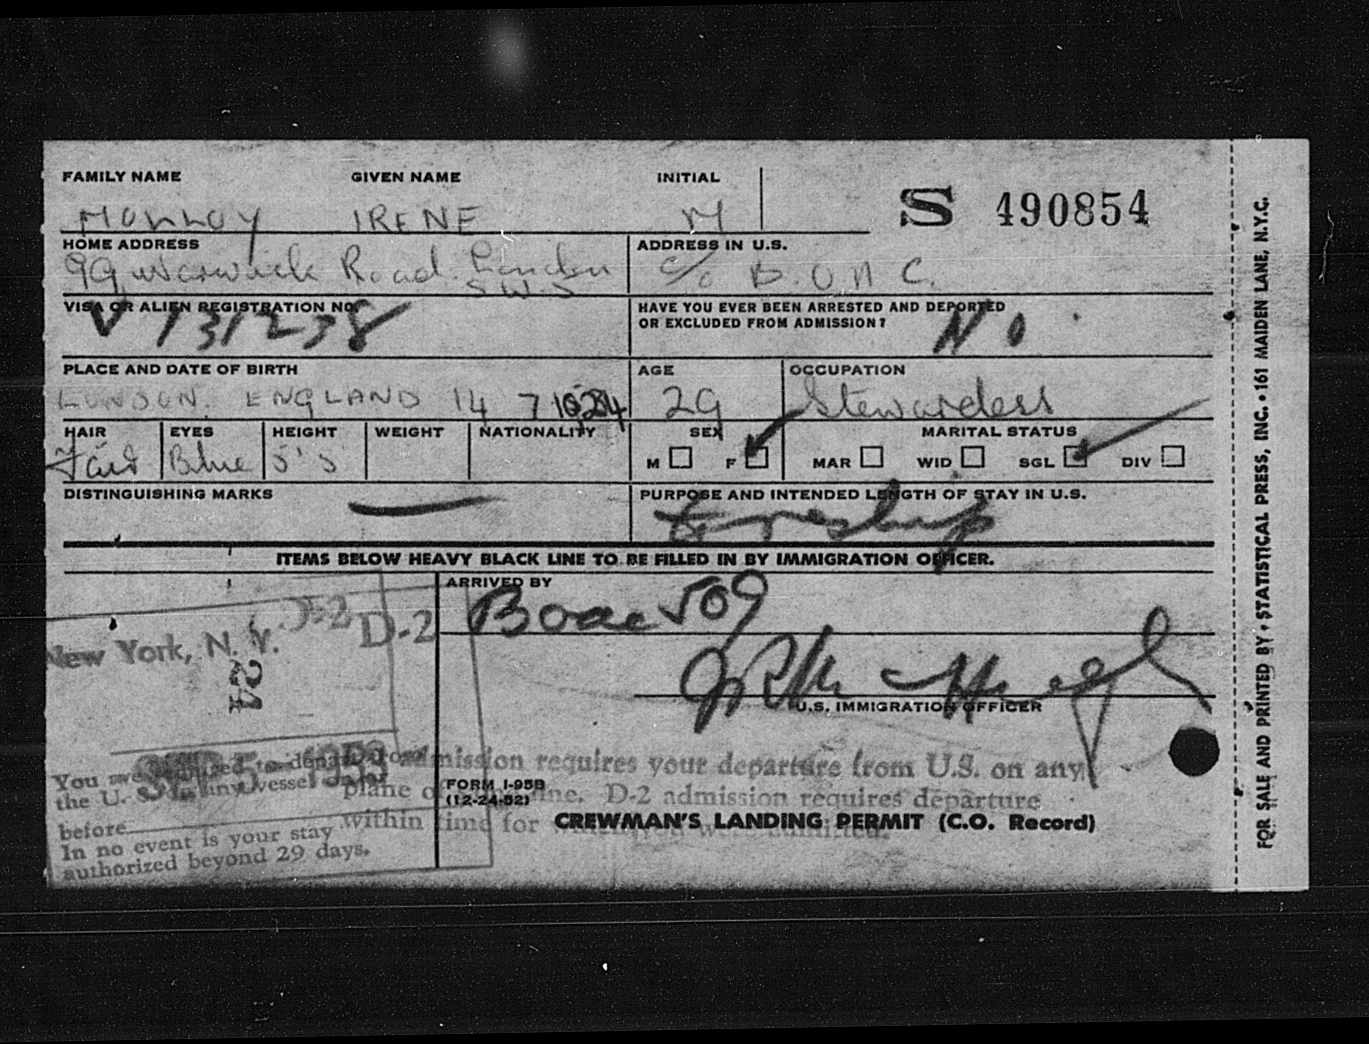 FAMILY NAME GIVEN NAME INITIAL
MOLLOY IRENE M
S 490854
HOME ADDRESS
99 Warwick Road London
S.W.5
ADDRESS IN U.S.
c/o B.O.A.C.
VISA OR ALIEN REGISTRATION NO.
V 131238
HAVE YOU EVER BEEN ARRESTED AND DEPORTED
OR EXCLUDED FROM ADMISSION?
No
PLACE AND DATE OF BIRTH
LONDON. ENGLAND 14 7 1924
AGE
29
OCCUPATION
Stewardess
HAIR EYES HEIGHT WEIGHT NATIONALITY
Fair Blue 5' 5
SEX
M F
MARITAL STATUS
MAR WID SGL DIV
DISTINGUISHING MARKS
—
PURPOSE AND INTENDED LENGTH OF STAY IN U.S.
ITEMS BELOW HEAVY BLACK LINE TO BE FILLED IN BY IMMIGRATION OFFICER.
ARRIVED BY
Boac 509
U.S. IMMIGRATION OFFICER
D-2 D-2
New York, N. Y.
224
SEP 5
You are required to depart from
the U.S. in any vessel
before
In no event is your stay
authorized beyond 29 days.
admission requires your departure from U.S. on any
plane of line. D-2 admission requires departure
within time for
FORM I-95B
(12-24-52)
CREWMAN'S LANDING PERMIT (C.O. Record)
FOR SALE AND PRINTED BY • STATISTICAL PRESS, INC. • 161 MAIDEN LANE, N.Y.C.